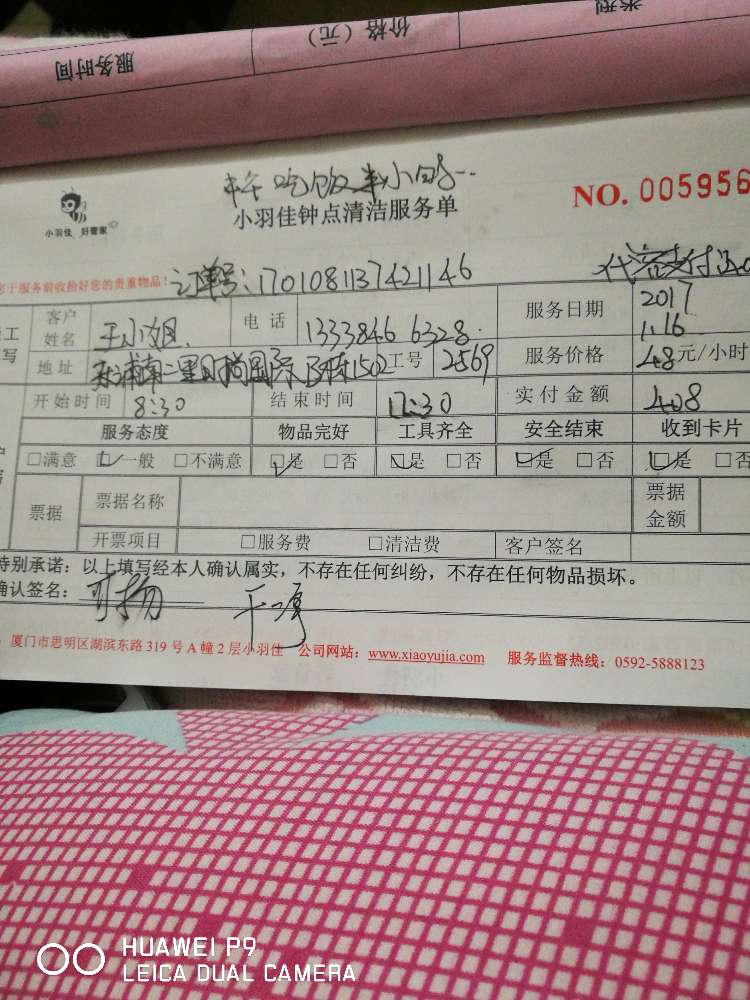 服务时间 价格（元） 类型
中午吃饭半小时
NO. 005956
小羽佳 好管家
小羽佳钟点清洁服务单
于服务前收拾好您的贵重物品！订单号：1701081137421146
客户姓名 王小姐 电话 13338466328 服务日期 2017 1.16
地址 二里 国际 1502 工号 2569 服务价格 48元/小时
开始时间 8:30 结束时间 17:30 实付金额 408
服务态度 物品完好 工具齐全 安全结束 收到卡片
□满意 □一般 □不满意 □是 □否 □是 □否 □是 □否 □是 □否
票据 票据名称 票据金额
开票项目 □服务费 □清洁费 客户签名
特别承诺：以上填写经本人确认属实，不存在任何纠纷，不存在任何物品损坏。
确认签名：
厦门市思明区湖滨东路 319 号 A 幢 2 层小羽佳 公司网站：www.xiaoyujia.com 服务监督热线：0592-5888123
HUAWEI P9
LEICA DUAL CAMERA